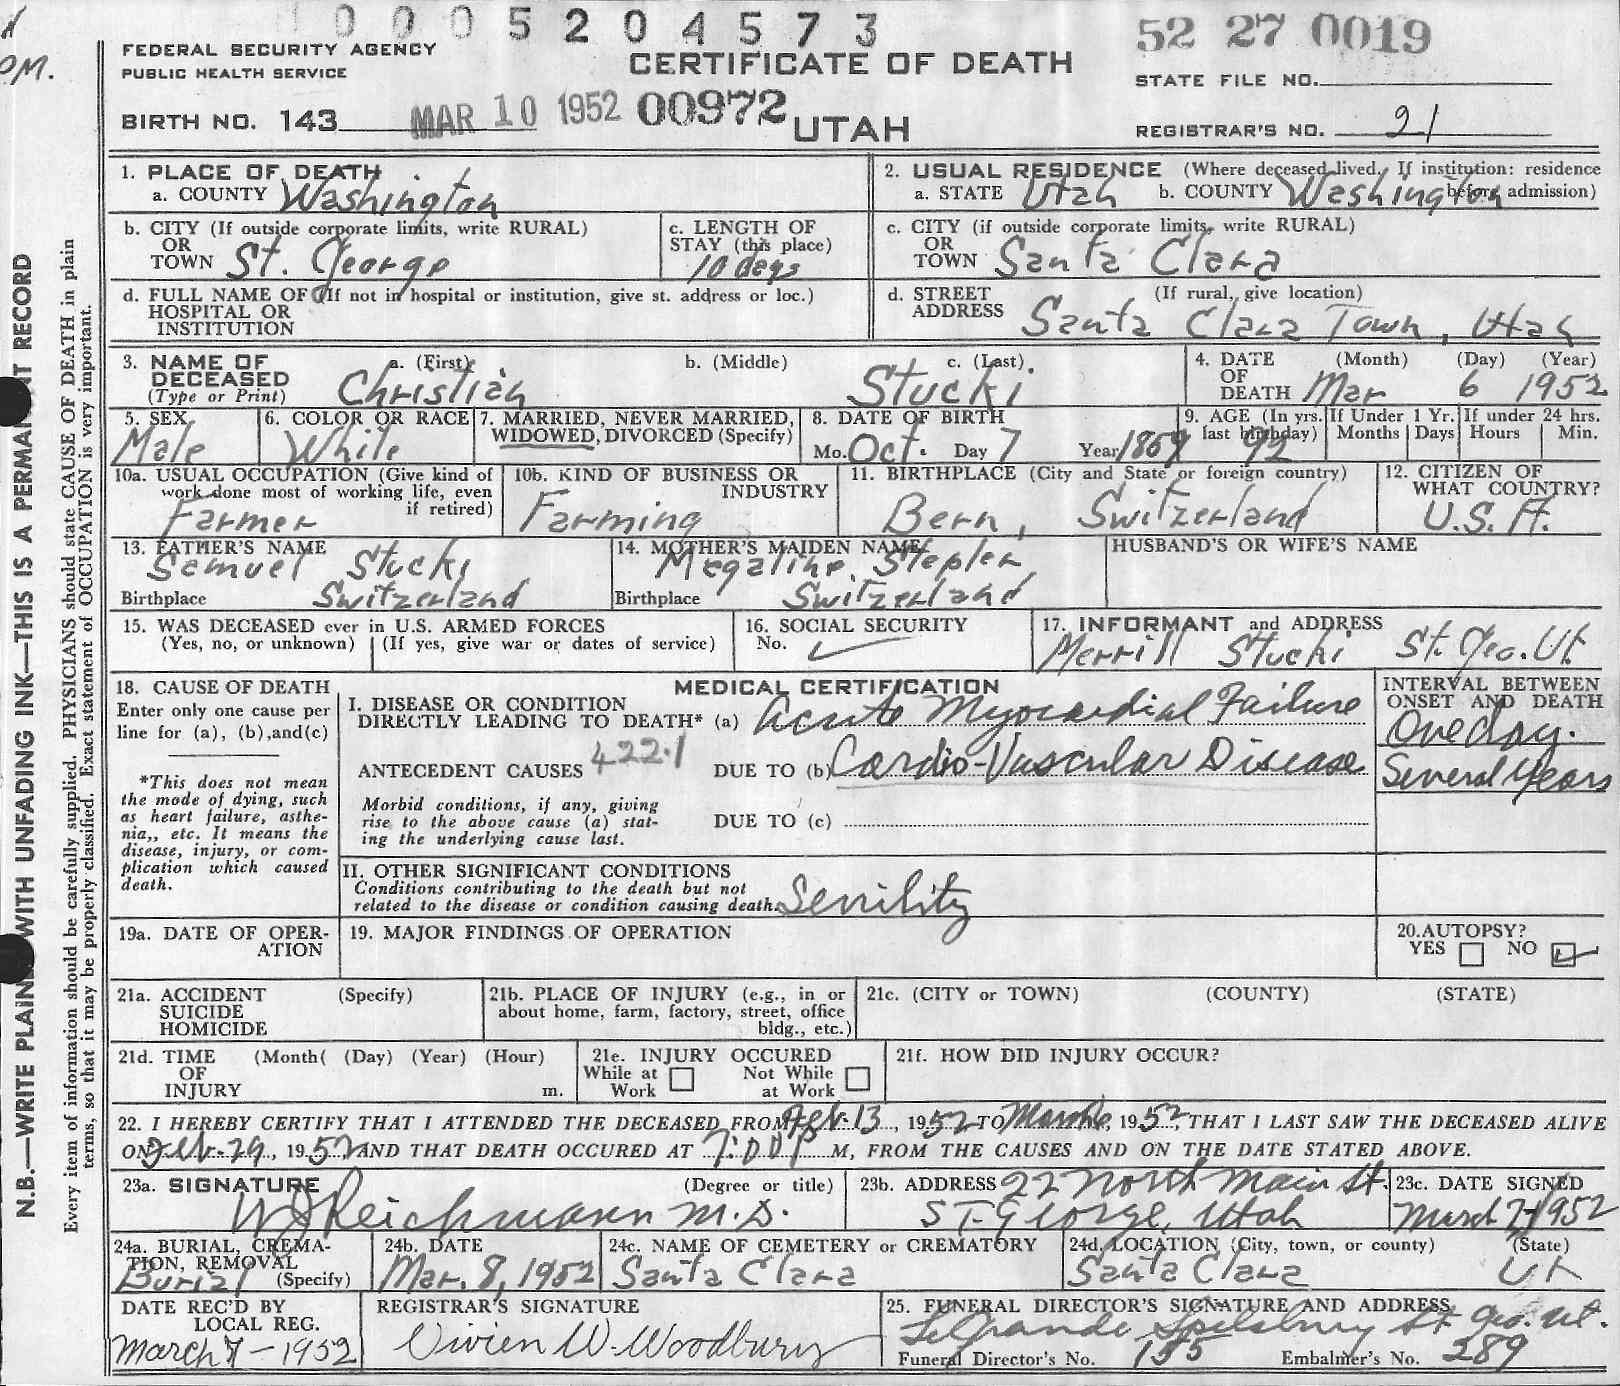 0005204573
52 27 0019
FEDERAL SECURITY AGENCY
PUBLIC HEALTH SERVICE
CERTIFICATE OF DEATH
STATE FILE NO.
BIRTH NO. 143 MAR 10 1952 00972 UTAH
REGISTRAR'S NO. 21
OM.
N.B.—WRITE PLAIN WITH UNFADING INK—THIS IS A PERMA T RECORD
Every item of information should be carefully supplied. PHYSICIANS should state CAUSE OF DEATH in plain
terms, so that it may be properly classified. Exact statement of OCCUPATION is very important.
1. PLACE OF DEATH
a. COUNTY Washington
2. USUAL RESIDENCE (Where deceased lived. If institution: residence before admission)
a. STATE Utah b. COUNTY Washington
b. CITY (If outside corporate limits, write RURAL)
OR
TOWN St. George
c. LENGTH OF
STAY (this place)
10 days
c. CITY (if outside corporate limits, write RURAL)
OR
TOWN Santa Clara
d. FULL NAME OF (If not in hospital or institution, give st. address or loc.)
HOSPITAL OR
INSTITUTION
d. STREET (If rural, give location)
ADDRESS Santa Clara Town, Utah
3. NAME OF DECEASED
(Type or Print)
a. (First) b. (Middle) c. (Last)
Christian Stucki
4. DATE OF DEATH (Month) (Day) (Year)
Mar 6 1952
5. SEX
Male
6. COLOR OR RACE
White
7. MARRIED, NEVER MARRIED,
WIDOWED, DIVORCED (Specify)
8. DATE OF BIRTH
Mo. Oct. Day 7 Year 1859
9. AGE (In yrs. last birthday) 92
If Under 1 Yr.
Months Days
If under 24 hrs.
Hours Min.
10a. USUAL OCCUPATION (Give kind of
work done most of working life, even
if retired)
Farmer
10b. KIND OF BUSINESS OR
INDUSTRY
Farming
11. BIRTHPLACE (City and State or foreign country)
Bern, Switzerland
12. CITIZEN OF
WHAT COUNTRY?
U.S.A.
13. FATHER'S NAME
Samuel Stucki
Birthplace Switzerland
14. MOTHER'S MAIDEN NAME
Birthplace Switzerland
HUSBAND'S OR WIFE'S NAME
15. WAS DECEASED ever in U.S. ARMED FORCES
(Yes, no, or unknown) (If yes, give war or dates of service)
16. SOCIAL SECURITY
No.
17. INFORMANT and ADDRESS
Merrill Stucki St. Geo. Ut.
18. CAUSE OF DEATH
Enter only one cause per
line for (a), (b),and(c)
*This does not mean
the mode of dying, such
as heart failure, asthe-
nia,, etc. It means the
disease, injury, or com-
plication which caused
death.
MEDICAL CERTIFICATION
I. DISEASE OR CONDITION
DIRECTLY LEADING TO DEATH* (a) Acute Myocardial Failure
ANTECEDENT CAUSES 422.1 DUE TO (b) Cardio-Vascular Disease
Morbid conditions, if any, giving
rise to the above cause (a) stat-
ing the underlying cause last.
DUE TO (c)
INTERVAL BETWEEN
ONSET AND DEATH
One day.
Several Years
II. OTHER SIGNIFICANT CONDITIONS
Conditions contributing to the death but not
related to the disease or condition causing death. Senility
19a. DATE OF OPER-
ATION
19. MAJOR FINDINGS OF OPERATION
20.AUTOPSY?
YES NO
21a. ACCIDENT (Specify)
SUICIDE
HOMICIDE
21b. PLACE OF INJURY (e.g., in or
about home, farm, factory, street, office
bldg., etc.)
21c. (CITY or TOWN) (COUNTY) (STATE)
21d. TIME (Month( (Day) (Year) (Hour)
OF
INJURY m.
21e. INJURY OCCURED
While at Work Not While at Work
21f. HOW DID INJURY OCCUR?
22. I HEREBY CERTIFY THAT I ATTENDED THE DECEASED FROM Feb. 13, 1952 TO March 6, 1952, THAT I LAST SAW THE DECEASED ALIVE
ON Feb. 29, 1952 AND THAT DEATH OCCURED AT 7:00 P M, FROM THE CAUSES AND ON THE DATE STATED ABOVE.
23a. SIGNATURE (Degree or title)
W J Reichmann M.D.
23b. ADDRESS 22 North Main St.
St. George, Utah
23c. DATE SIGNED
March 7-1952
24a. BURIAL, CREMA-
TION, REMOVAL
(Specify)
Burial
24b. DATE
Mar. 8, 1952
24c. NAME OF CEMETERY or CREMATORY
Santa Clara
24d. LOCATION (City, town, or county) (State)
Santa Clara Ut
DATE REC'D BY
LOCAL REG.
March 7-1952
REGISTRAR'S SIGNATURE
Vivien W. Woodbury
25. FUNERAL DIRECTOR'S SIGNATURE AND ADDRESS
LeGrande Spilsbury St. Geo. Ut.
Funeral Director's No. 155 Embalmer's No. 289